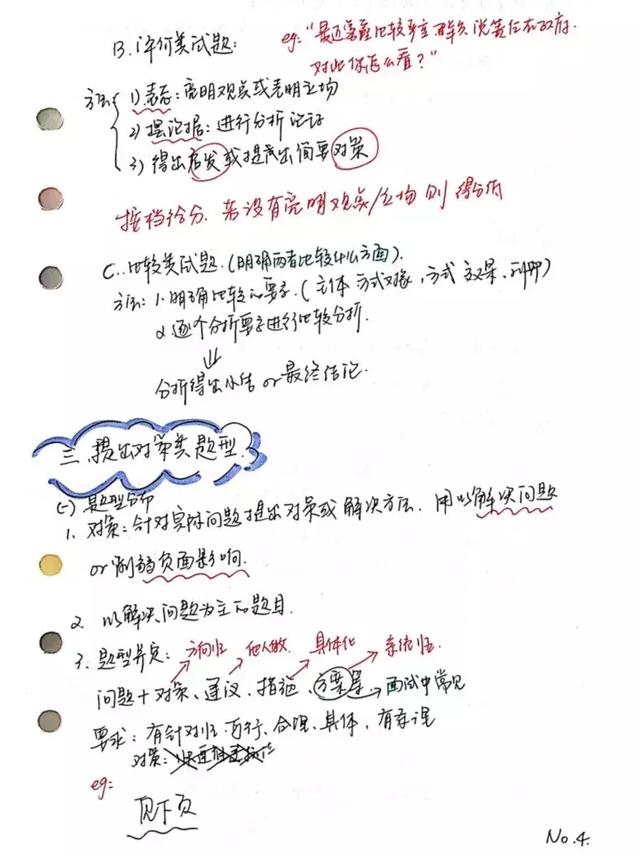 B.评价类试题:
eg:"最近雾霾比较严重 群众说责任在政府.
对此你怎么看?"
方法
1)表态:亮明观点或表明立场
2)摆论据:进行分析论证
3)得出启发或提出简要对策
按档给分.若没有亮明观点/立场 则 得分低
C.比较类试题.(明确两者比较什么方面).
方法:1.明确比较的要求.(主体 方式对象,方式 效果,利弊)
2.逐个分析要求进行比较分析.
⇓
分析得出小结 or 最终结论.
三.提出对策类题型.
(一)题型分布
1.对策:针对实际问题提出对策或解决方法.用以解决问题
or 消弱负面影响.
2.以解决问题为主的题目.
3.题型异责: 方向性 他人做. 具体化 系统性.
问题+对策、建议、措施、方案等→面试中常见
要求:有针对性、可行、合理、具体、有条理
对策:
eg:
见下页
No.4.